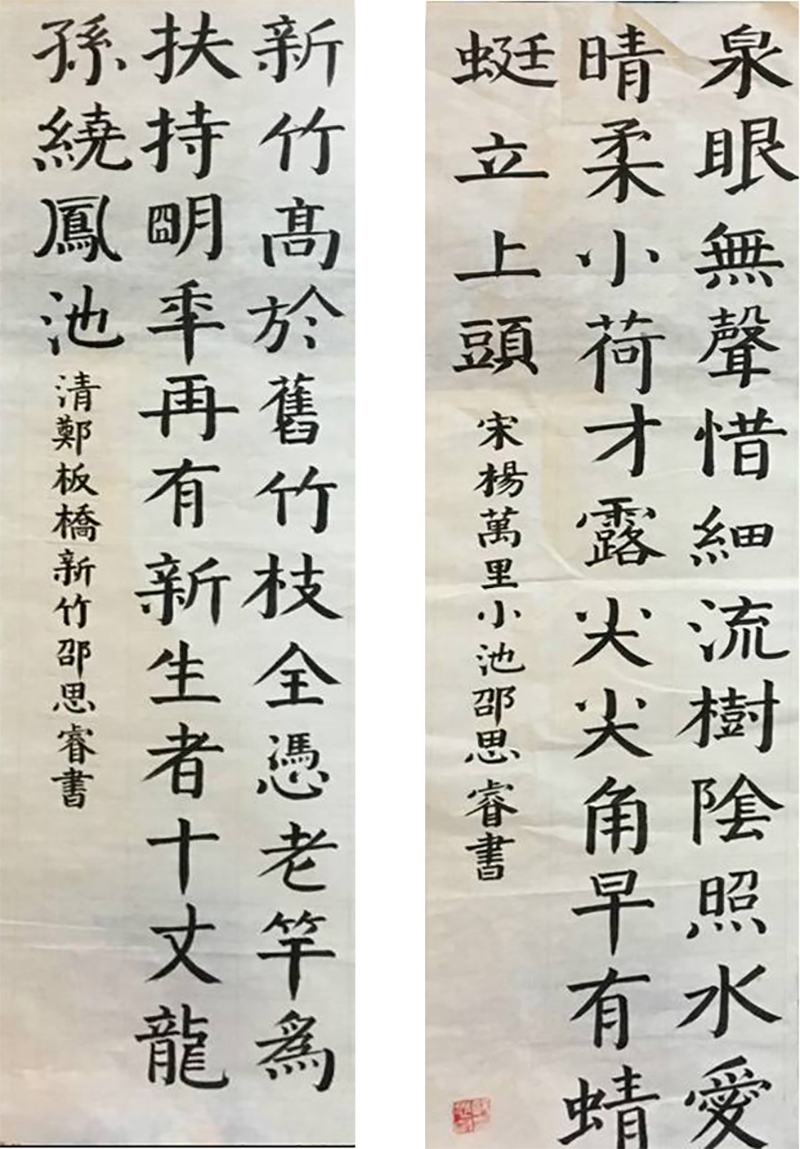 泉眼無聲惜細流樹陰照水愛
晴柔小荷才露尖尖角早有蜻
蜓立上頭
宋楊萬里小池邵思睿書
新竹髙於舊竹枝全憑老竿爲
扶持朙年再有新生者十丈龍
孫繞鳳池
清鄭板橋新竹邵思睿書